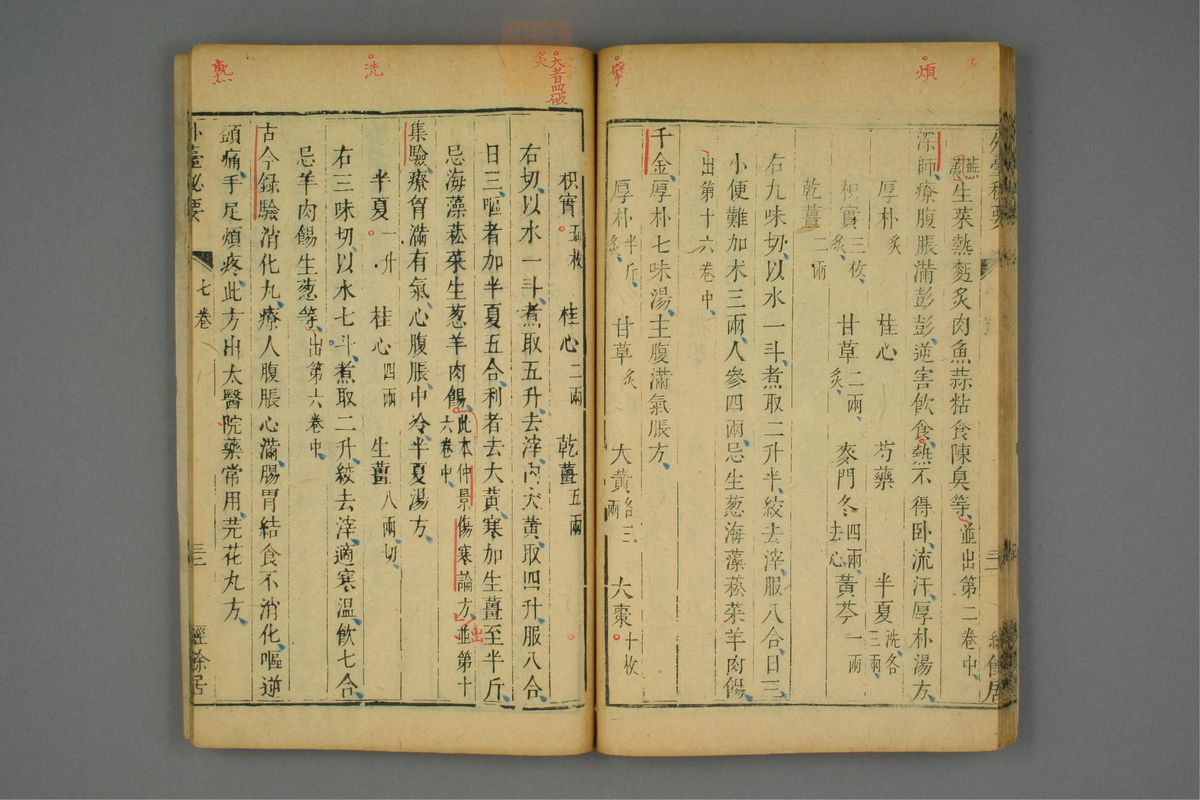 煩
擘
外臺秘要
生菜熱麪炙肉魚蒜粘食陳臭等並出第二卷中
深師療腹脹滿彭彭逆害飲食熱不得臥流汗厚朴湯方
厚朴炙 桂心 芍藥 半夏洗各三兩
枳實三枚炙 甘草二兩炙 麥門冬四兩去心 黃芩一兩
乾薑二兩
右九味切以水一斗煮取二升半絞去滓服八合日三
小便難加朮三兩人參四兩忌生葱海藻菘菜羊肉餳
出第十六卷中
千金厚朴七味湯主腹滿氣脹方
厚朴半斤炙 甘草炙 大黃各三兩 大棗十枚
大者四破
炙
洗
熟
枳實五枚 桂心二兩 乾薑五兩
右切以水一斗煮取五升去滓內大黃取四升服八合
日三嘔者加半夏五合利者去大黃寒加生薑至半斤
忌海藻菘菜生葱羊肉餳此本仲景傷寒論方並出第十六卷中
集驗療胷滿有氣心腹脹中冷半夏湯方
半夏一升 桂心四兩 生薑八兩切
右三味切以水七斗煮取二升絞去滓適寒溫飲七合
忌羊肉餳生葱等出第六卷中
古今録驗消化丸療人腹脹心滿腸胃結食不消化嘔逆
頭痛手足煩疼此方出太醫院藥常用芫花丸方
外臺秘要 七卷 三 經餘居